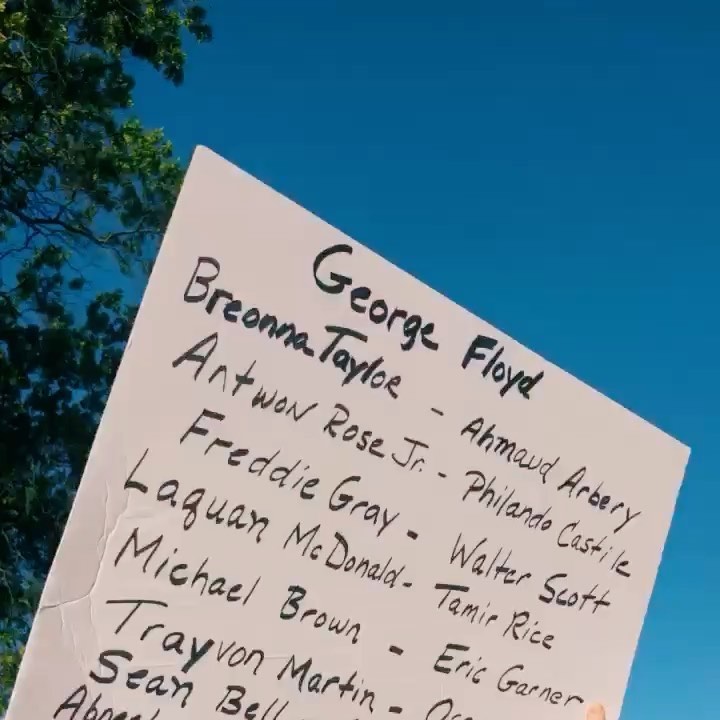 George Floyd
Breonna Taylor - Ahmaud Arbery
Antwon Rose Jr. - Philando Castile
Freddie Gray - Walter Scott
Laquan McDonald - Tamir Rice
Michael Brown - Eric Garner
Trayvon Martin -
Sean Bell